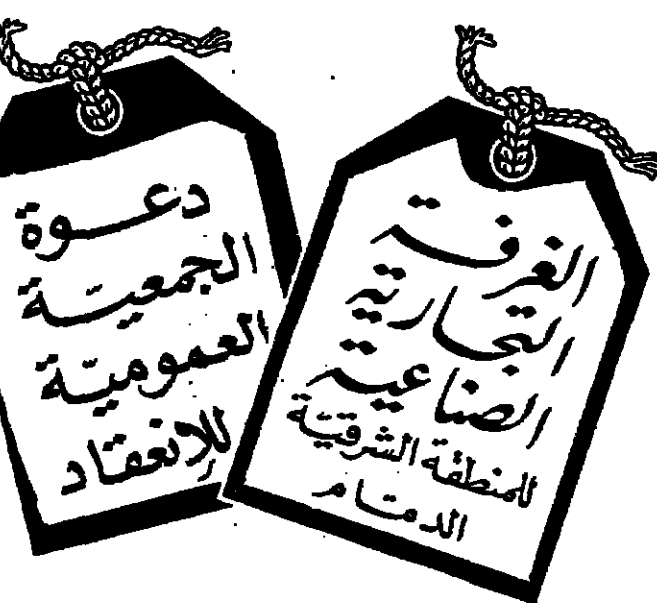 الغرفة
التجارية
الصناعية
للمنطقة الشرقية
الدمام
دعوة
الجمعية
العمومية
للانعقاد